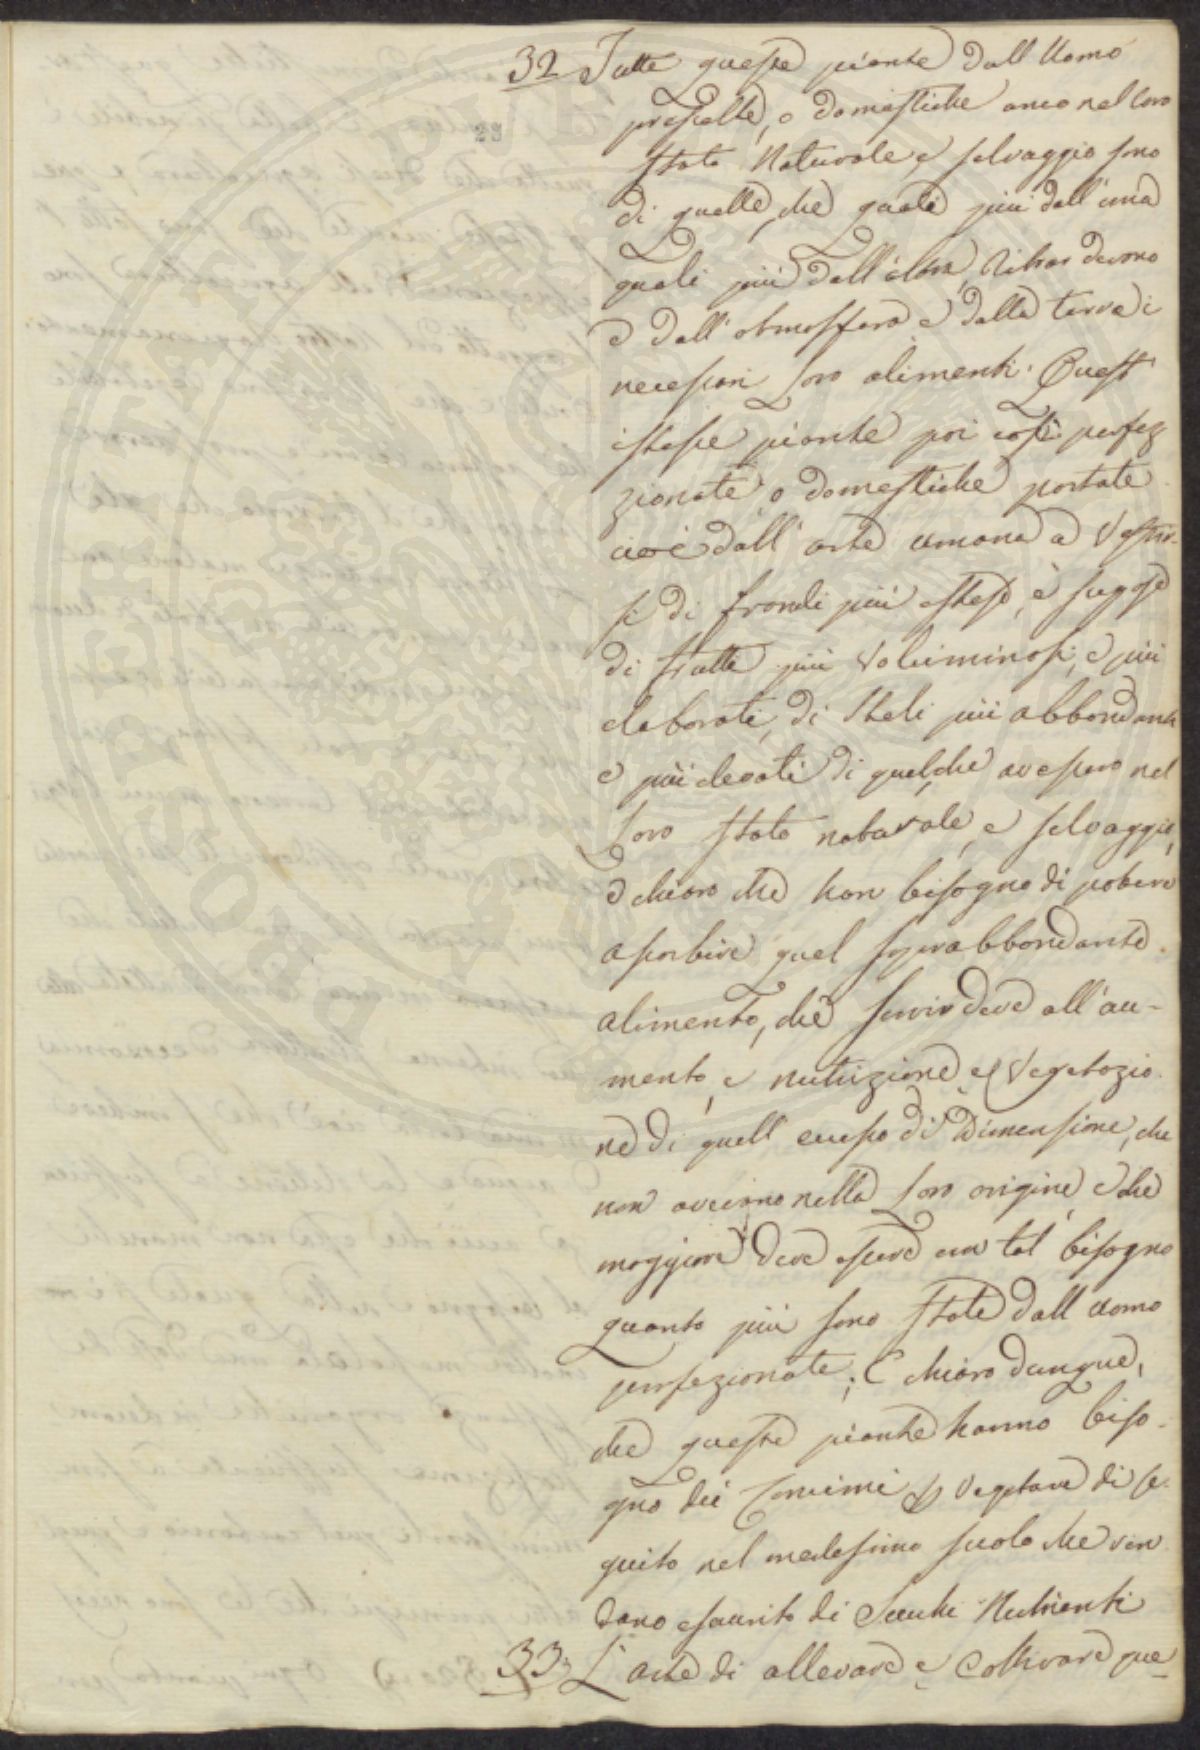 32 Tutte queste piante dall Uomo
prescelte, o domestiche anco nel loro
stato Naturale, e selvaggio sono
di quelle, che quali più dall'una
quali più dall'altra, Ritraer devono
e dall'atmosfera e dalla terra i
necessari loro alimenti. Quest'
istesse piante poi così perfez
zionate, o domestiche portate
cioè dall'arte umana a Vestir-
si di frondi più estese, e sugose
di frutti più Voluminosi, e più
elaborati, di Steli più abbondanti
e più elevati di quel che avessero nel
loro stato naturale, e selvaggio,
è chiaro che han bisogno di potere
assorbire quel soprabbondante
alimento, che servir deve all'au-
mento, e nutrizione e Vegetazio
ne di quell eccesso di Dimensione, che
non avevano nella loro origine, e che
maggiore deve essere un tal bisogno
quanto più sono state dall uomo
perfezionate; E chiaro dunque,
che queste piante hanno biso-
gno dei Concimi p Vegetare di se
guito nel medesimo suolo che ren
dano esaurito di Succhi Nutrienti
33 L'arte di allevare e Coltivare que-
23